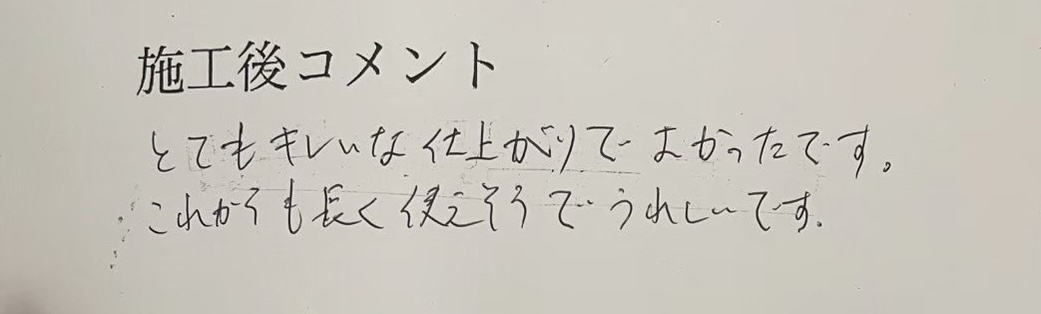 施工後コメント
とてもキレいな仕上がりでよかったです。
これからも長く使えそうでうれしいです.